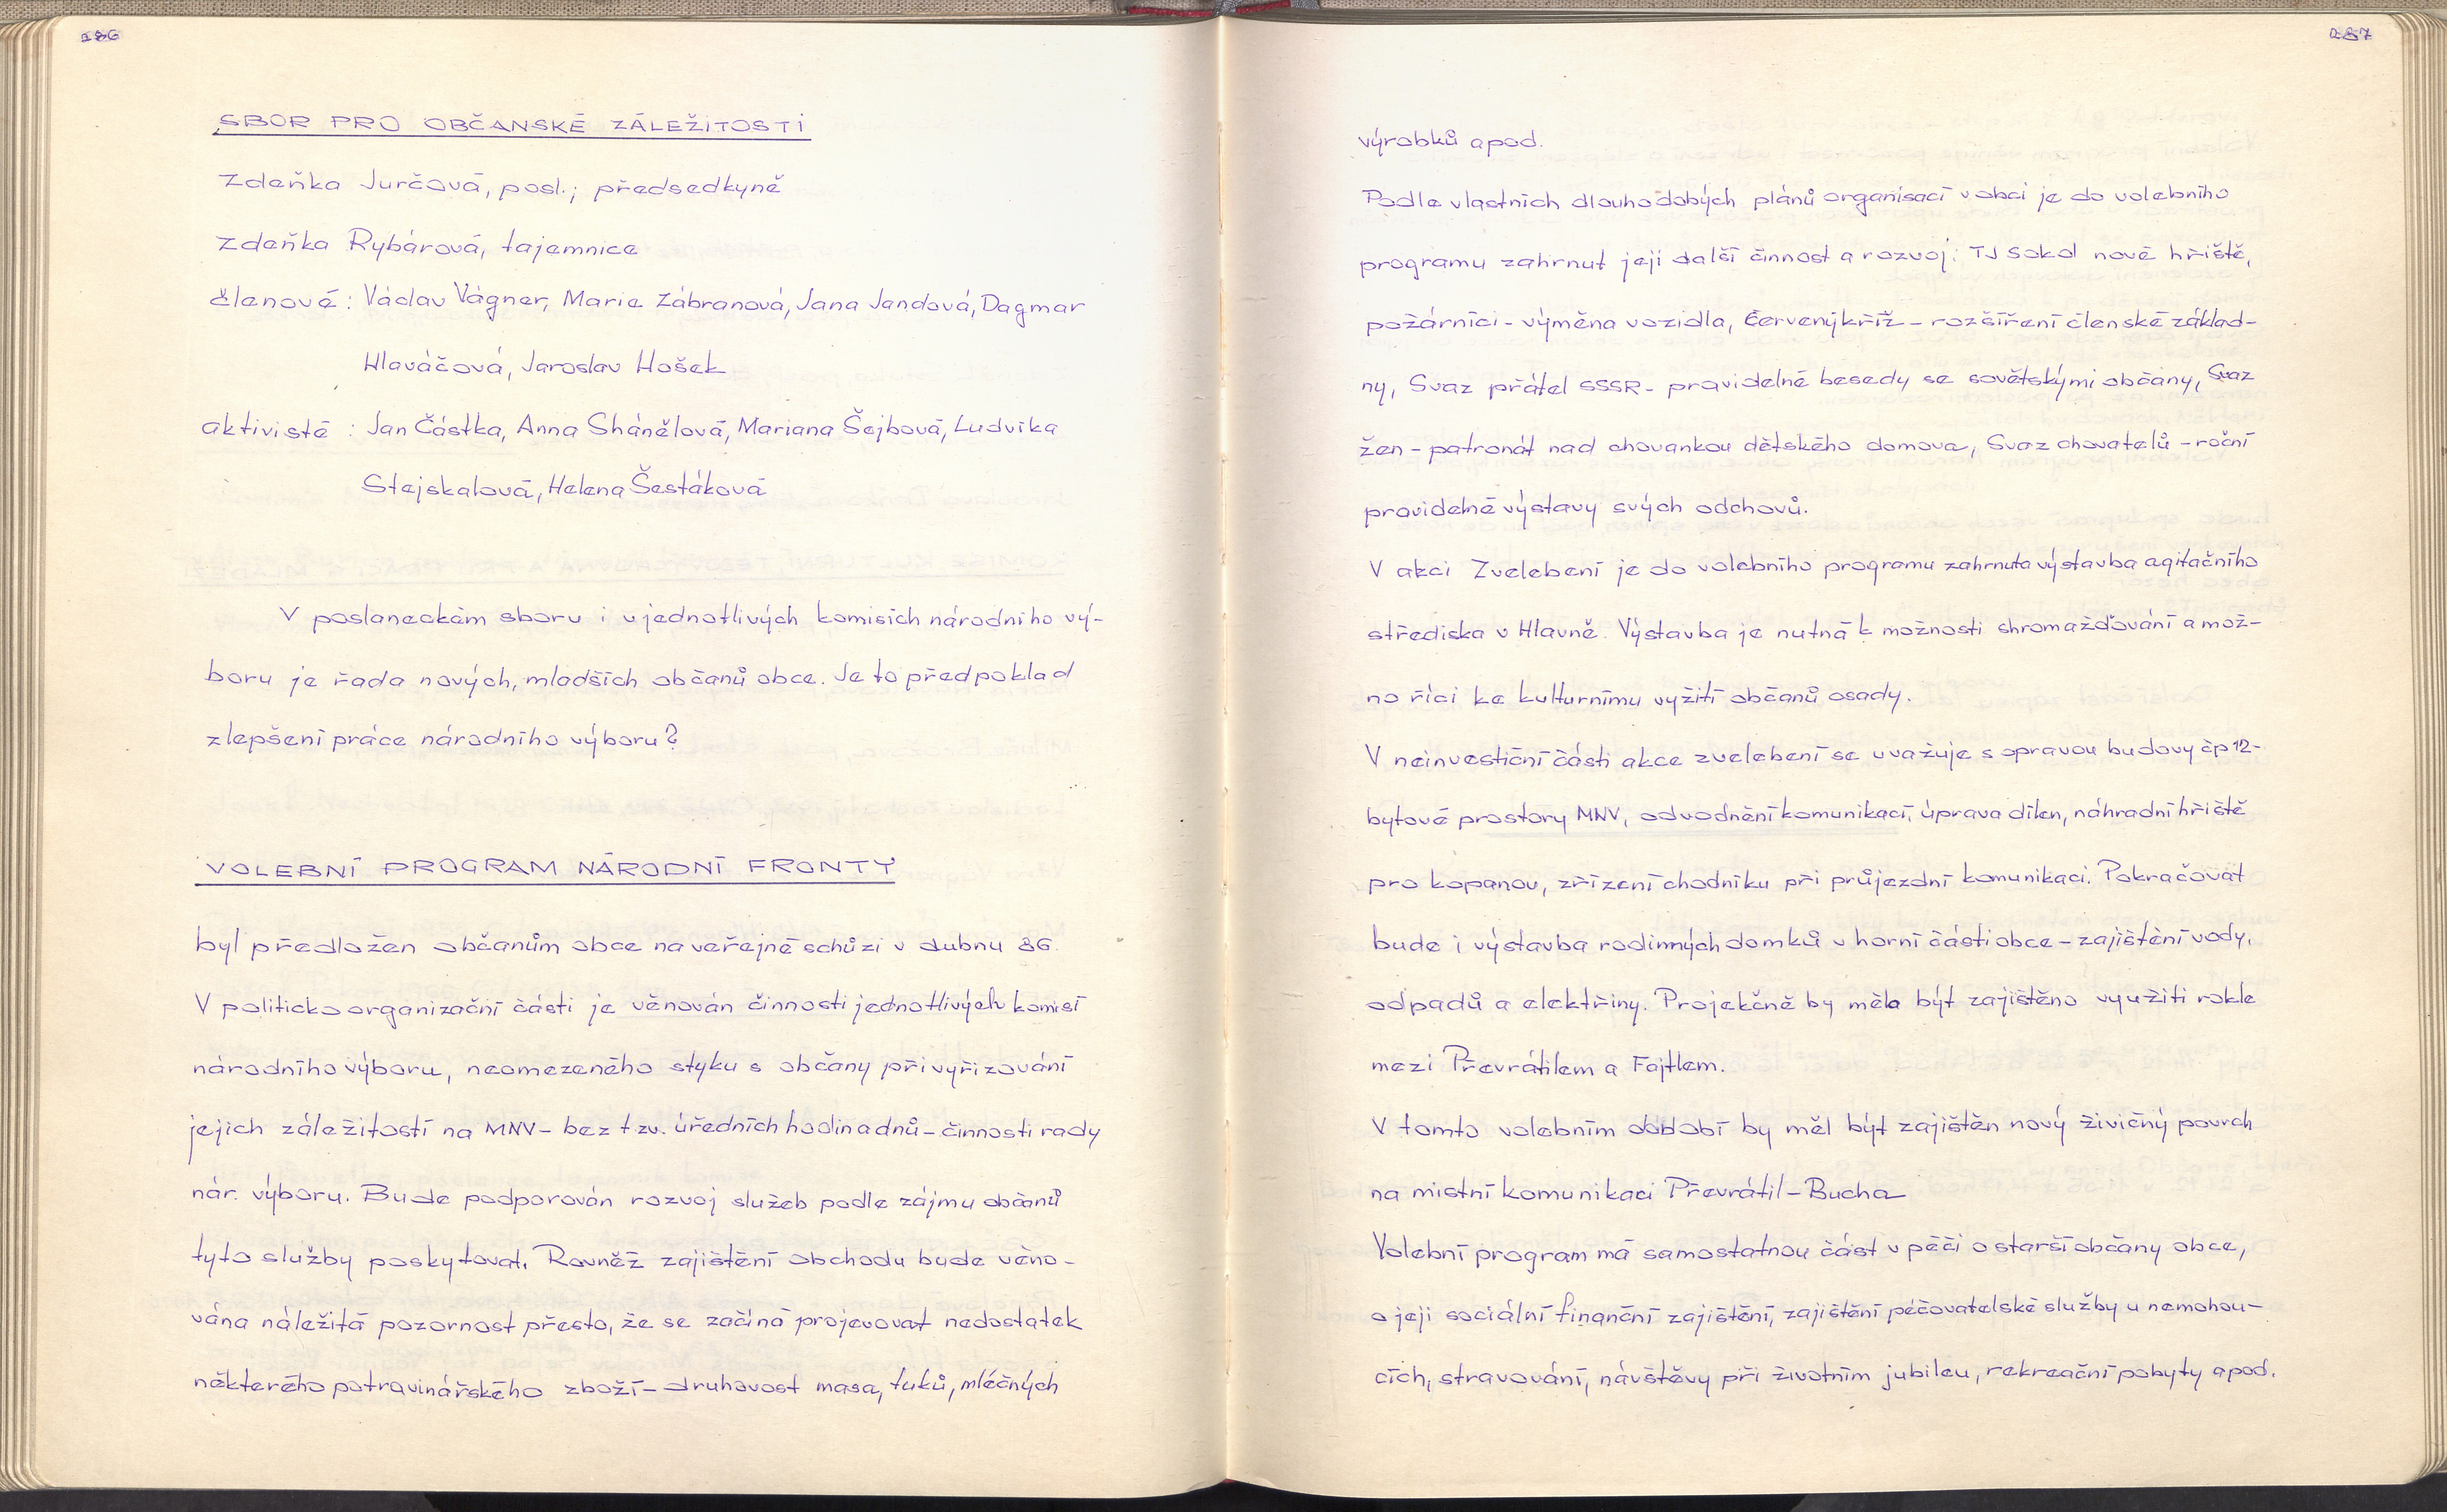 186
SBOR PRO OBČANSKÉ ZÁLEŽITOSTI
Zdeňka Jurčová, posl.; předsedkyně
Zdeňka Rybárová, tajemnice
členové: Václav Vágner, Marie Zábranová, Jana Jandová, Dagmar
Hlaváčová, Jaroslav Hošek
aktivisté: Jan Částka, Anna Shánělová, Mariana Šejbová, Ludvika
Stejskalová, Helena Šestáková
V poslaneckém sboru i v jednotlivých komisích národního vý-
boru je řada nových, mladších občanů obce. Je to předpoklad
zlepšení práce národního výboru?
VOLEBNÍ PROGRAM NÁRODNÍ FRONTY
byl předložen občanům obce na veřejné schůzi v dubnu 86.
V politicko organizační části je věnován činnosti jednotlivých komisí
národního výboru, neomezeného styku s občany při vyřizování
jejich záležitostí na MNV - bez t.zv. úředních hodin a dnů - činnosti rady
nár. výboru. Bude podporován rozvoj služeb podle zájmu občanů
tyto služby poskytovat. Rovněž zajištění obchodu bude věno-
vána náležitá pozornost přesto, že se začíná projevovat nedostatek
některého potravinářského zboží - druhovost masa, tuků, mléčných
187
výrobků apod.
Podle vlastních dlouhodobých plánů organisací v obci je do volebního
programu zahrnut její další činnost a rozvoj: TJ Sokol nové hřiště,
požárníci - výměna vozidla, Červený kříž - rozšíření členské základ-
ny, Svaz přátel SSSR - pravidelné besedy se sovětskými občany, Svaz
žen - patronát nad chovankou dětského domova, Svaz chovatelů - roční
pravidelné výstavy svých odchovů.
V akci Zvelebení je do volebního programu zahrnuta výstavba agitačního
střediska v Hlavně. Výstavba je nutná k možnosti shromažďování a mož-
no říci ke kulturnímu vyžití občanů osady.
V neinvestiční části akce zvelebení se uvažuje s opravou budovy čp 12 -
bytové prostory MNV, odvodnění komunikací, úprava dílen, náhradní hřiště
pro kopanou, zřízení chodníku při průjezdní komunikaci. Pokračovat
bude i výstavba rodinných domků v horní části obce - zajištění vody,
odpadů a elektřiny. Projekčně by mělo být zajištěno využití rokle
mezi Převrátilem a Fajtlem.
V tomto volebním období by měl být zajištěn nový živičný povrch
na místní komunikaci Převrátil - Bucha
Volební program má samostatnou část v péči o starší občany obce,
o její sociální finanční zajištění, zajištění pečovatelské služby u nemohou-
cích, stravování, návštěvy při životním jubileu, rekreační pobyty apod.